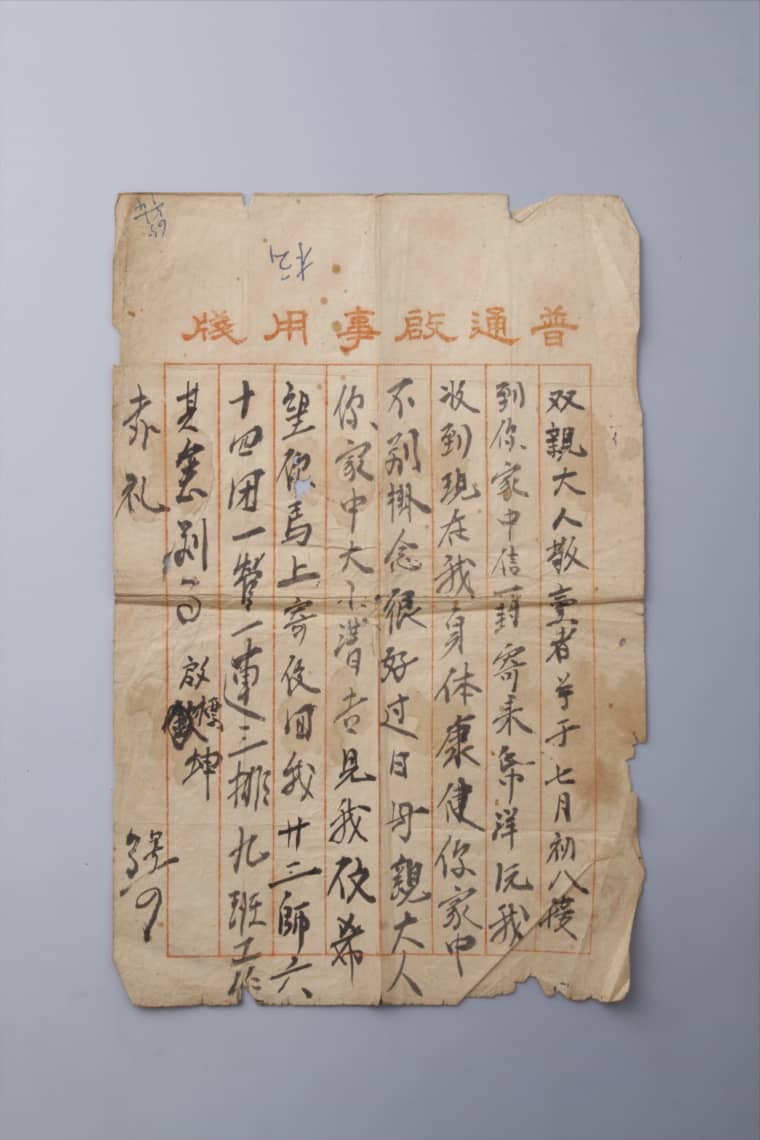 普通啟事用牋
双親大人敬禀者兹于七月初八接
到你家中信一封寄来希洋元我
收到現在我身体康健你家中
不别掛念很好过日母親大人
你家中大小清吉見我
望你馬上寄 回我廿三師六
十四团一营一連三排九班工作
其 别
啟標
坤
敬礼